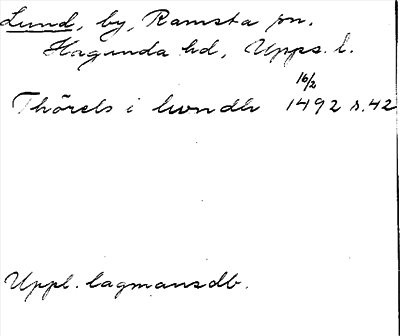 Lund, by, Ramsta sn.
Hagunda hd, Upps. l.
16/2
Thörels i lwndh 1492 s. 42
Uppl. lagmansdb.